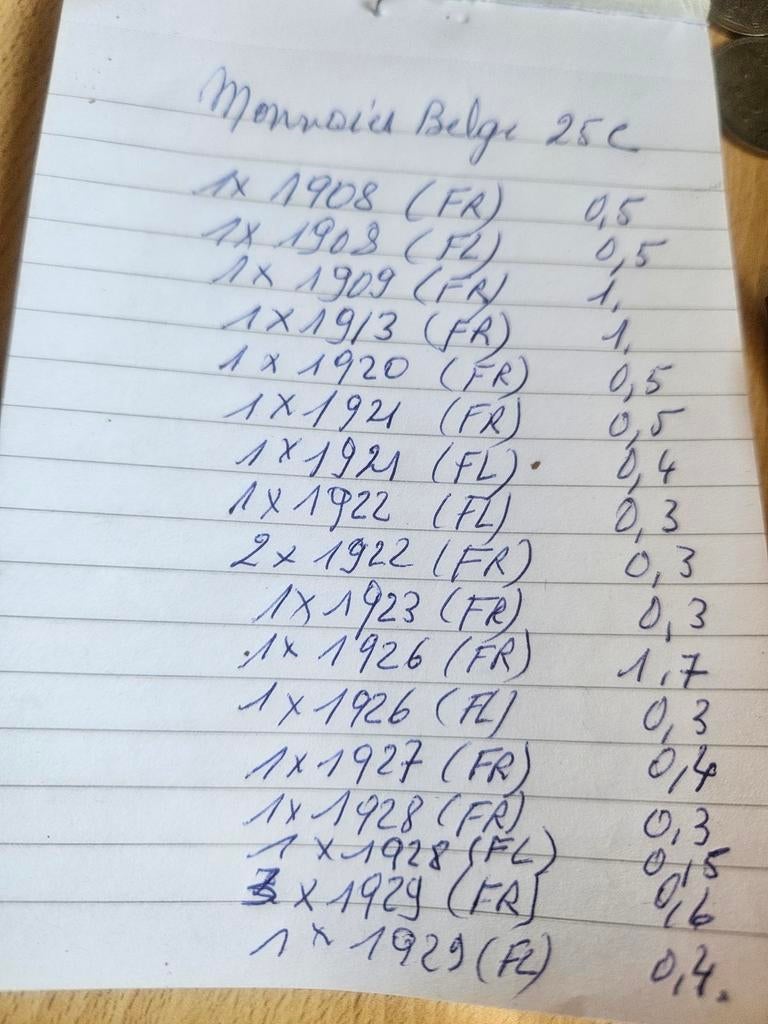 Monnaies Belge 25c
1x 1908 (FR) 0,5
1x 1908 (FL) 0,5
1x 1909 (FR) 1,
1x1913 (FR) 1,
1x 1920 (FR) 0,5
1x1921 (FR) 0,5
1x1921 (FL) 0,4
1x1922 (FL) 0,3
2x 1922 (FR) 0,3
1x1923 (FR) 0,3
1x 1926 (FR) 1,7
1x1926 (FL) 0,3
1x1927 (FR) 0,4
1x1928 (FR) 0,3
1x1928 (FL) 0,5
x1929 (FR) 0,6
1x 1929 (FL) 0,4.